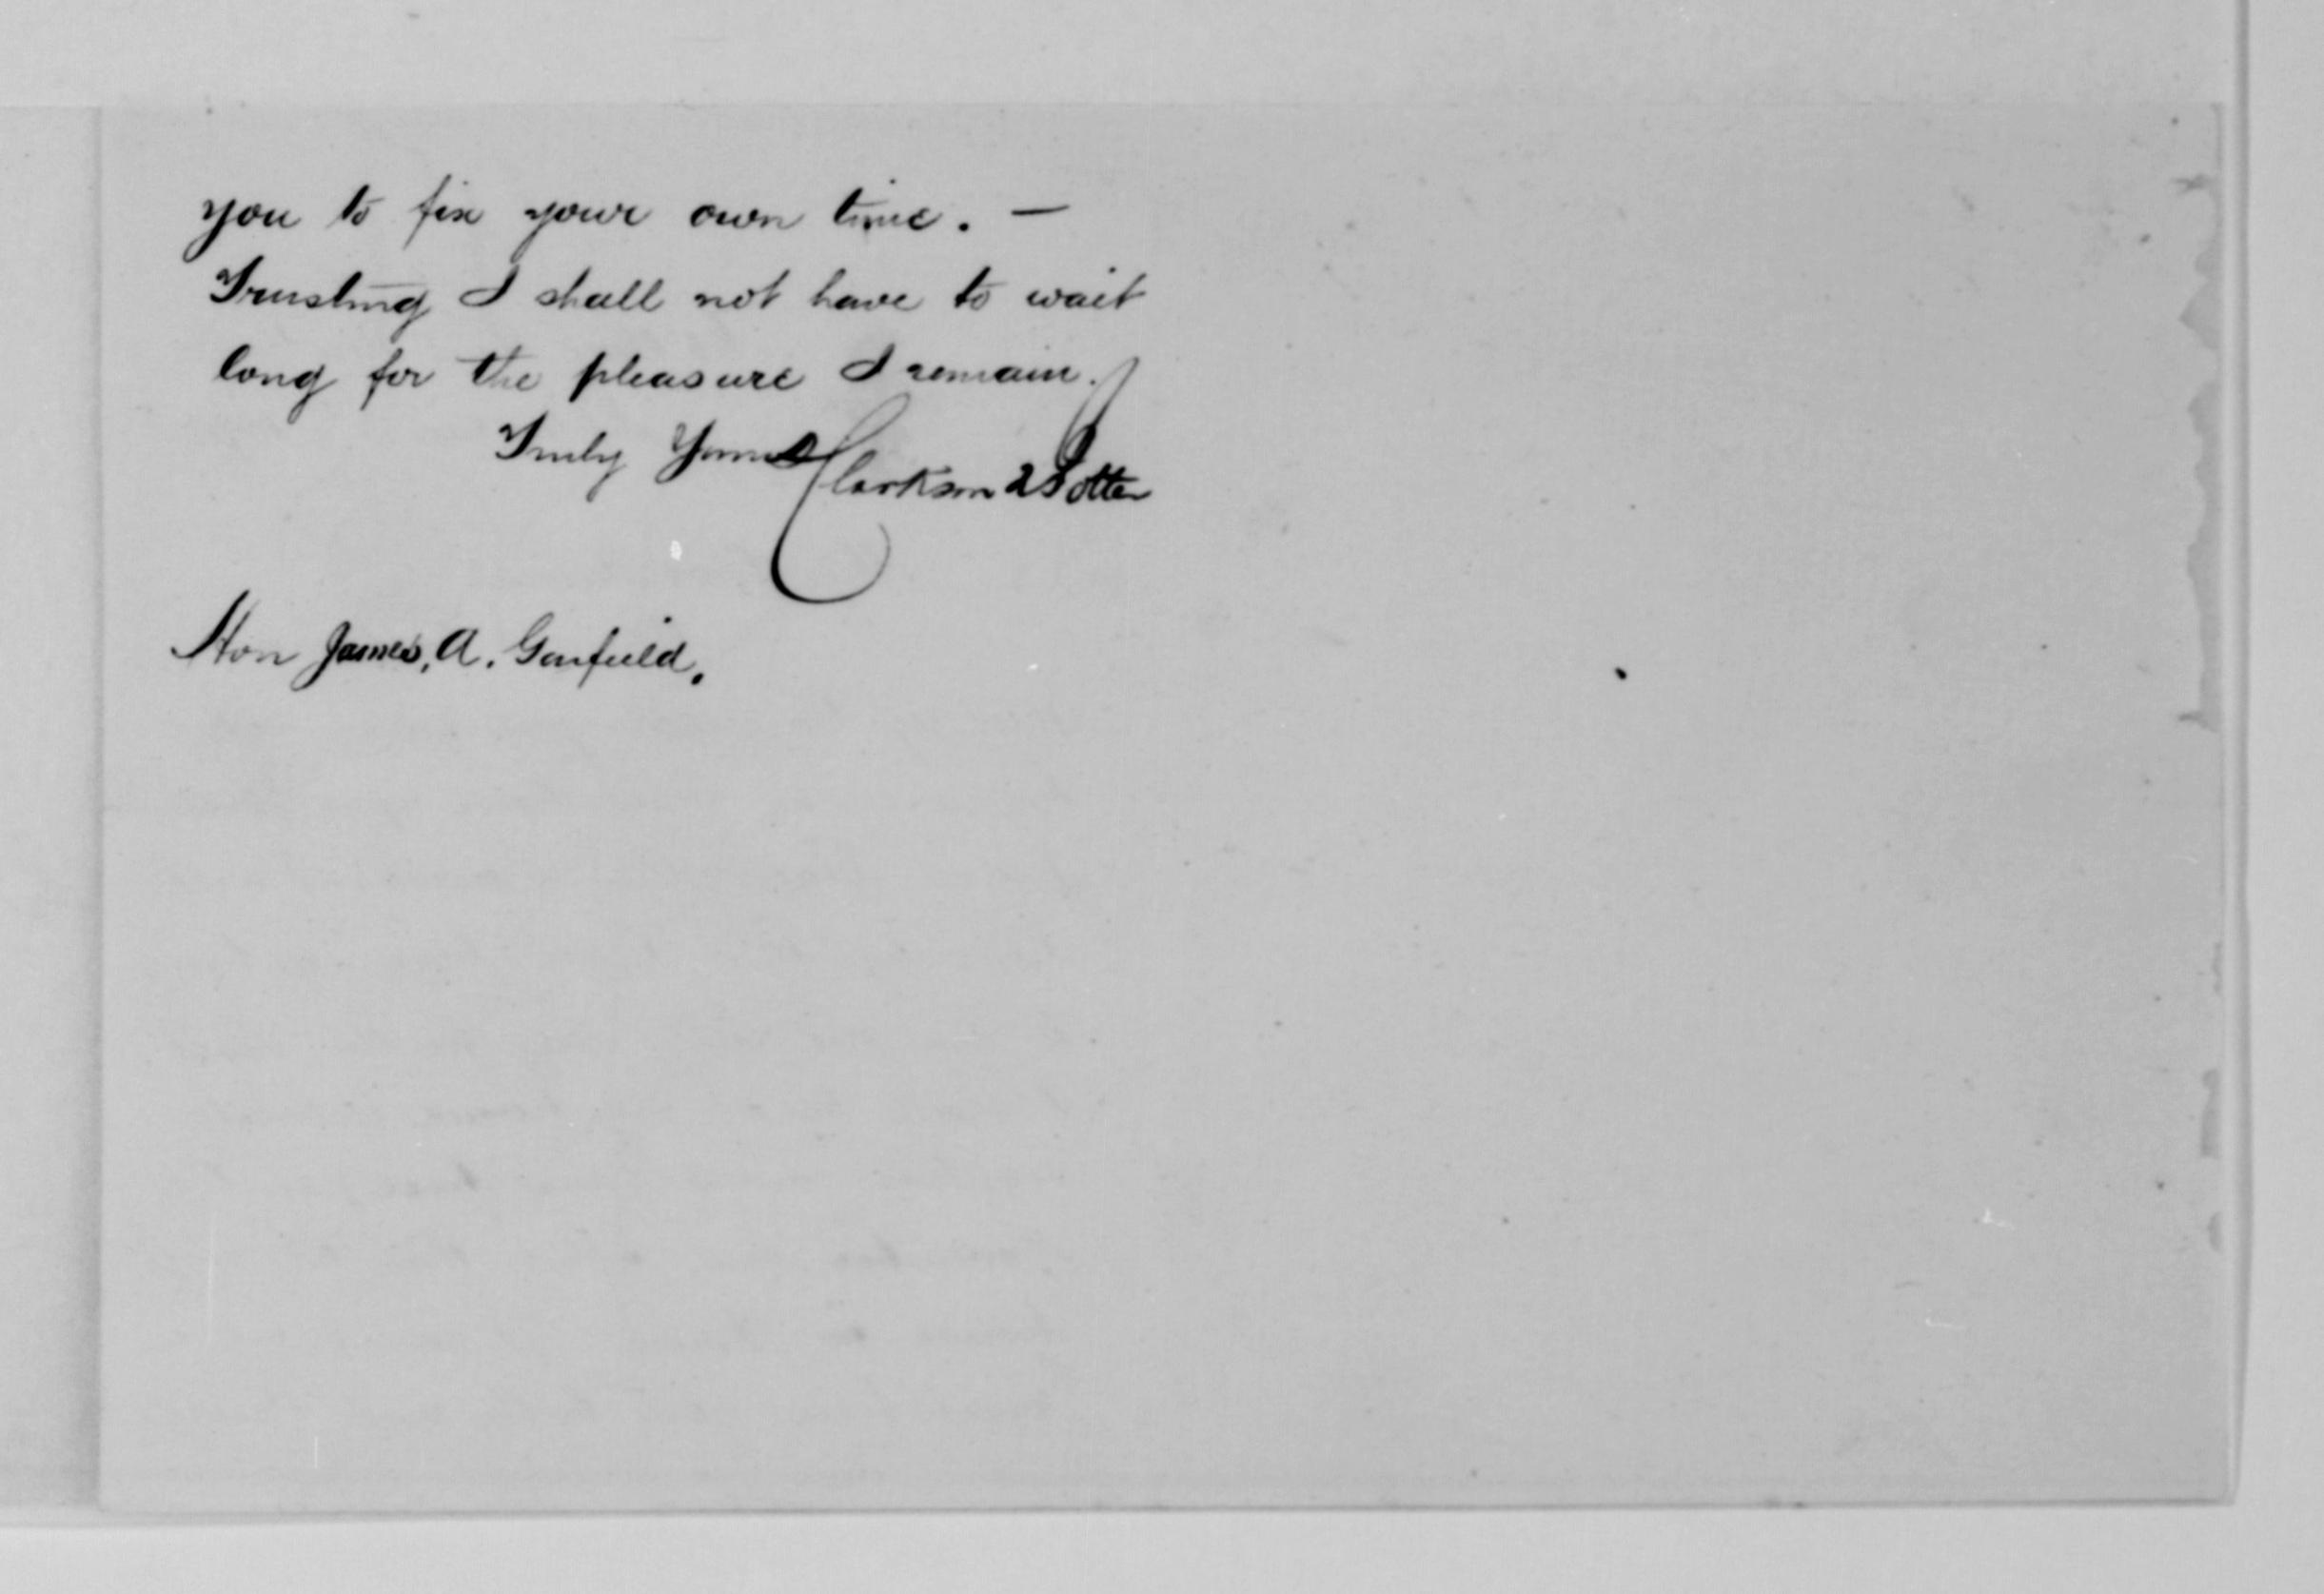 you to fix your own time. —
Trusting I shall not have to wait
long for the pleasure I remain.
Truly Yours
Clarkson N Potter
Hon James, A. Garfield.